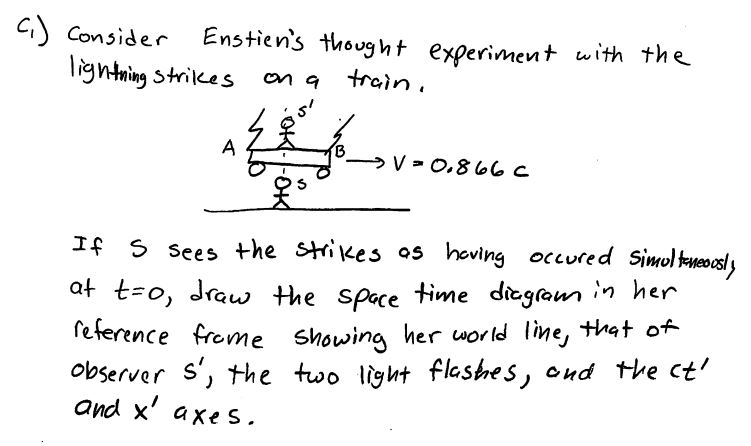 C₁) Consider Enstien's thought experiment with the
lightning strikes on a train.
s'
A
B
→ V = 0.866 c
s
If S sees the strikes as having occured simultaneously
at t=0, draw the space time diagram in her
reference frame showing her world line, that of
observer S', the two light flashes, and the ct'
and x' axes.